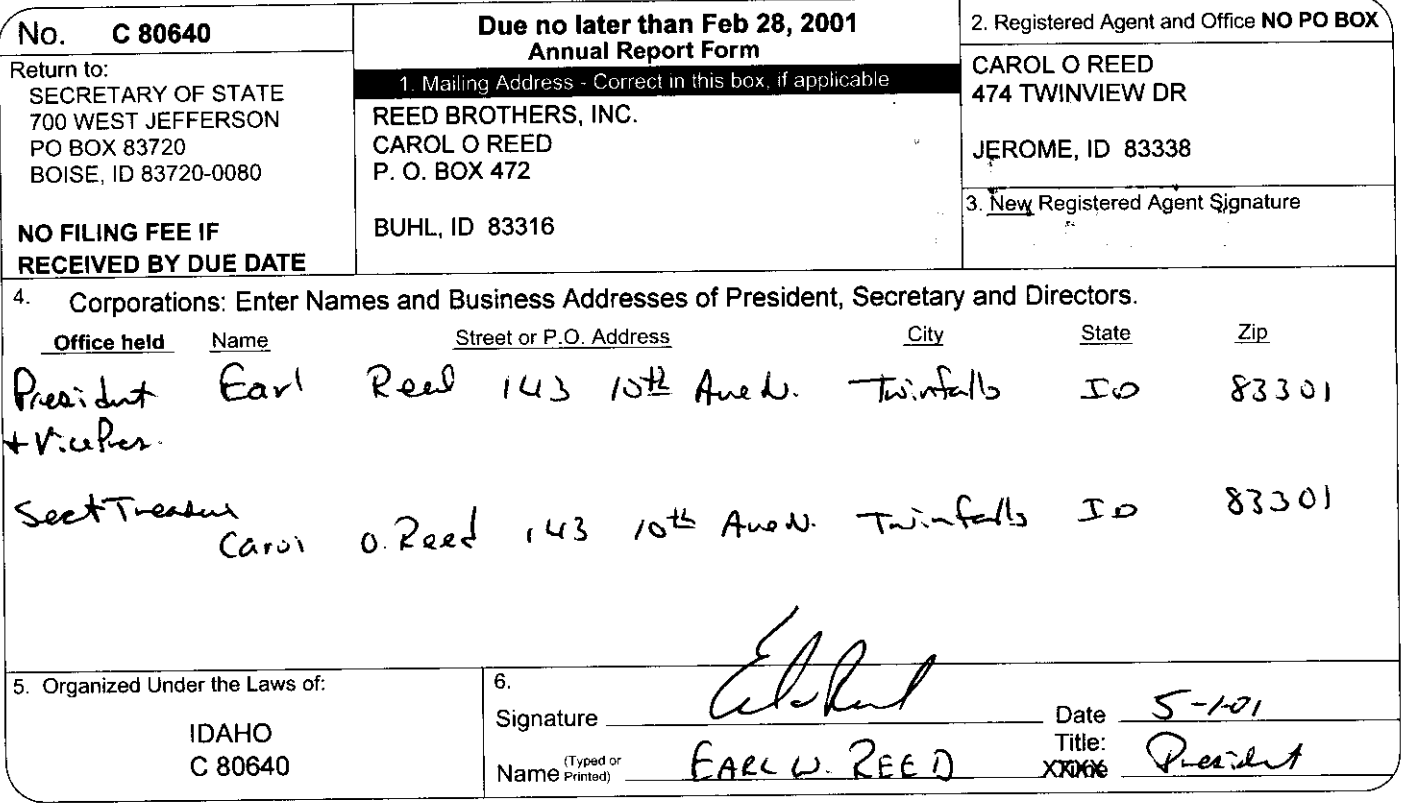 No. C 80640
Return to:
SECRETARY OF STATE
700 WEST JEFFERSON
PO BOX 83720
BOISE, ID 83720-0080
NO FILING FEE IF
RECEIVED BY DUE DATE
Due no later than Feb 28, 2001
Annual Report Form
1. Mailing Address - Correct in this box, if applicable
REED BROTHERS, INC.
CAROL O REED
P. O. BOX 472
BUHL, ID 83316
2. Registered Agent and Office NO PO BOX
CAROL O REED
474 TWINVIEW DR
JEROME, ID 83338
3. New Registered Agent Signature
4. Corporations: Enter Names and Business Addresses of President, Secretary and Directors.
Office held Name Street or P.O. Address City State Zip
President Earl Reed 143 10th Ave N. Twinfalls ID 83301
+ Vice Pres.
Sect Treasur
Carol O. Reed 143 10th Ave N. Twinfalls ID 83301
5. Organized Under the Laws of:
IDAHO
C 80640
6.
Signature Date 5-1-01
Name (Typed or Printed) EARL W. REED Title: President